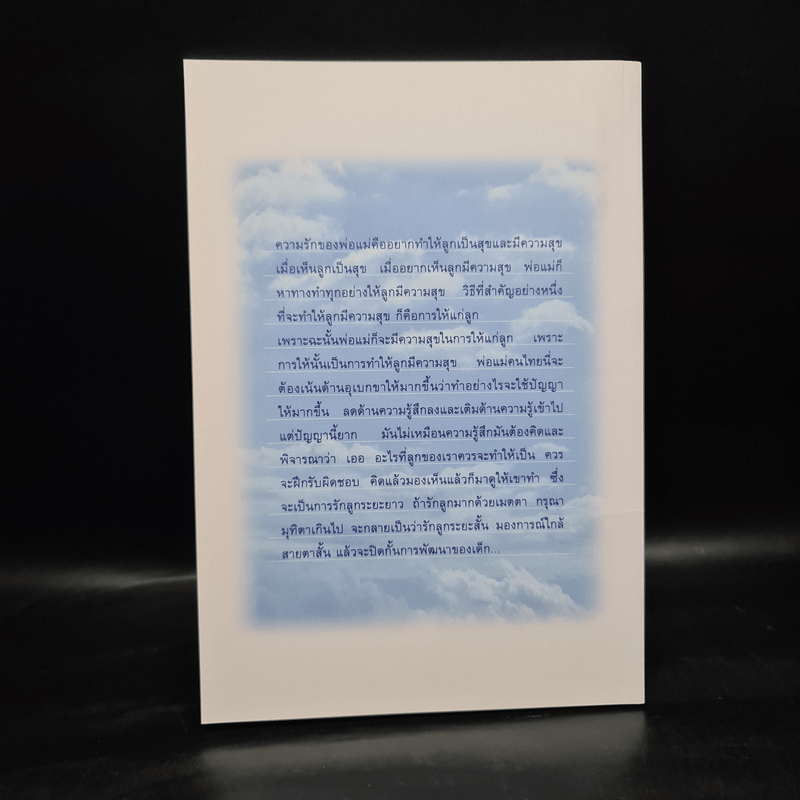 ความรักของพ่อแม่คืออยากทำให้ลูกเป็นสุขและมีความสุข
เมื่อเห็นลูกเป็นสุข เมื่ออยากเห็นลูกมีความสุข พ่อแม่ก็
หาทางทำทุกอย่างให้ลูกมีความสุข วิธีที่สำคัญอย่างหนึ่ง
ที่จะทำให้ลูกมีความสุข ก็คือการให้แก่ลูก
เพราะฉะนั้นพ่อแม่ก็จะมีความสุขในการให้แก่ลูก เพราะ
การให้นั้นเป็นการทำให้ลูกมีความสุข พ่อแม่คนไทยนี่จะ
ต้องเน้นด้านอุเบกขาให้มากขึ้นว่าทำอย่างไรจะใช้ปัญญา
ให้มากขึ้น ลดด้านความรู้สึกลงและเติมด้านความรู้เข้าไป
แต่ปัญญานี้ยาก มันไม่เหมือนความรู้สึกมันต้องคิดและ
พิจารณาว่า เออ อะไรที่ลูกของเราควรจะทำให้เป็น ควร
จะฝึกรับผิดชอบ คิดแล้วมองเห็นแล้วก็มาดูให้เขาทำ ซึ่ง
จะเป็นการรักลูกระยะยาว ถ้ารักลูกมากด้วยเมตตา กรุณา
มุทิตาเกินไป จะกลายเป็นว่ารักลูกระยะสั้น มองการณ์ใกล้
สายตาสั้น แล้วจะปิดกั้นการพัฒนาของเด็ก...